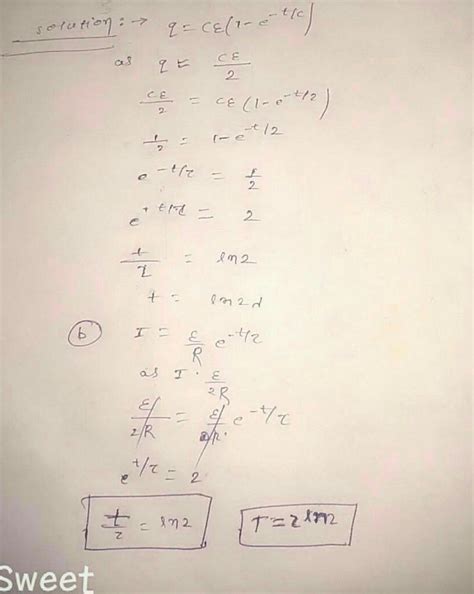 solution:→ q = Cε(1-e^-t/c)
as q = Cε/2
Cε/2 = Cε(1-e^-t/2)
1/2 = 1-e^-t/2
e^-t/τ = 1/2
e^+t/τ = 2
t/τ = ln2
t = ln2τ
(b) I = ε/R e^-t/τ
as I = ε/2R
ε/2R = ε/R e^-t/τ
e^t/τ = 2
t/τ = ln2 T = τln2
Sweet